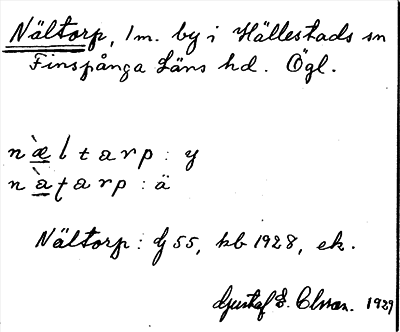 Nältorp, 1m. by i Hällestads sn
Finspånga Läns hd. Ögl.
næ̀ltarp : y
nàtarp : ä
Nältorp : G 55, kb 1928, ek.
Gustaf E. Olsson. 1929